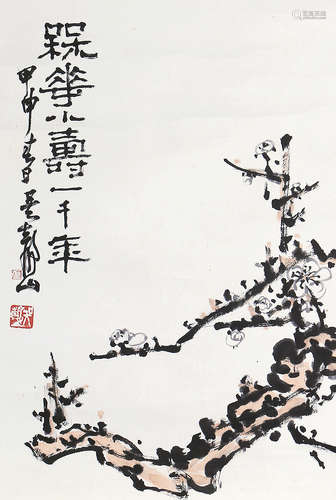 槑華小壽一千年
甲申春日吴山